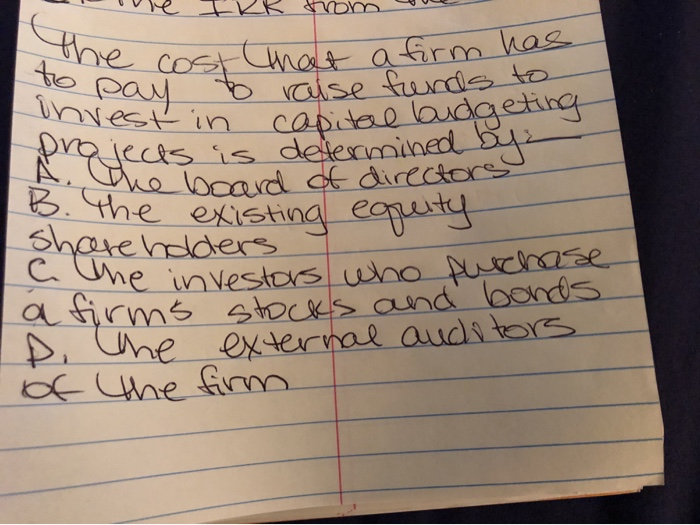 IRR from
The cost that a firm has
to pay to raise funds to
invest in capital budgeting
projects is determined by:-
A. The board of directors
B. The existing equity
shareholders
C. The investors who purchase
a firms stocks and bonds
D. The external auditors
of the firm